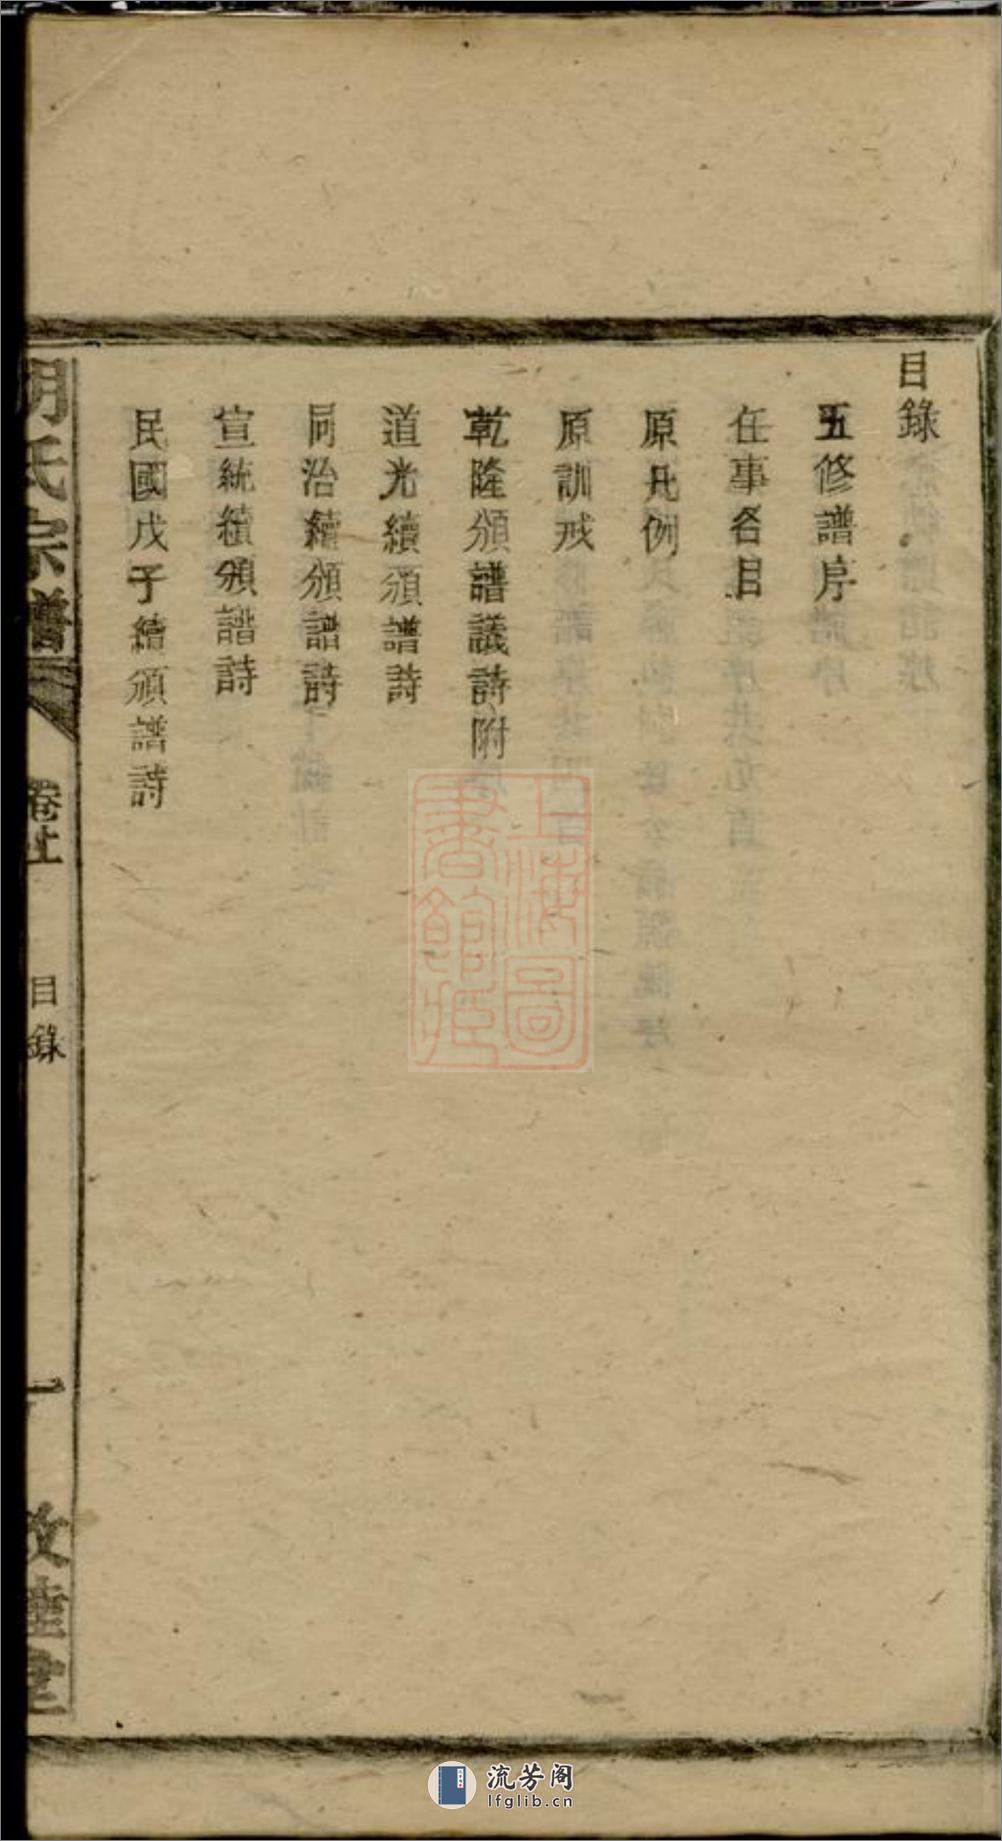 目錄
五修譜序
任事名目
原凡例
原訓戒
乾隆頒譜議詩附
道光續頒譜詩
同治續頒譜詩
宣統續頒譜詩
民國戊子續頒譜詩
胡氏宗譜
卷上
目錄
一
敦睦堂
上海圖書館藏
流芳阁
lfglib.cn